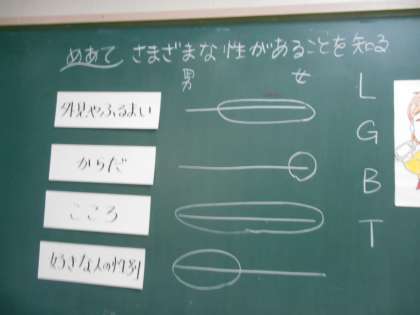 めあて さまざまな性があることを知る
男 女
外見やふるまい
からだ
こころ
好きな人の性別
L
G
B
T